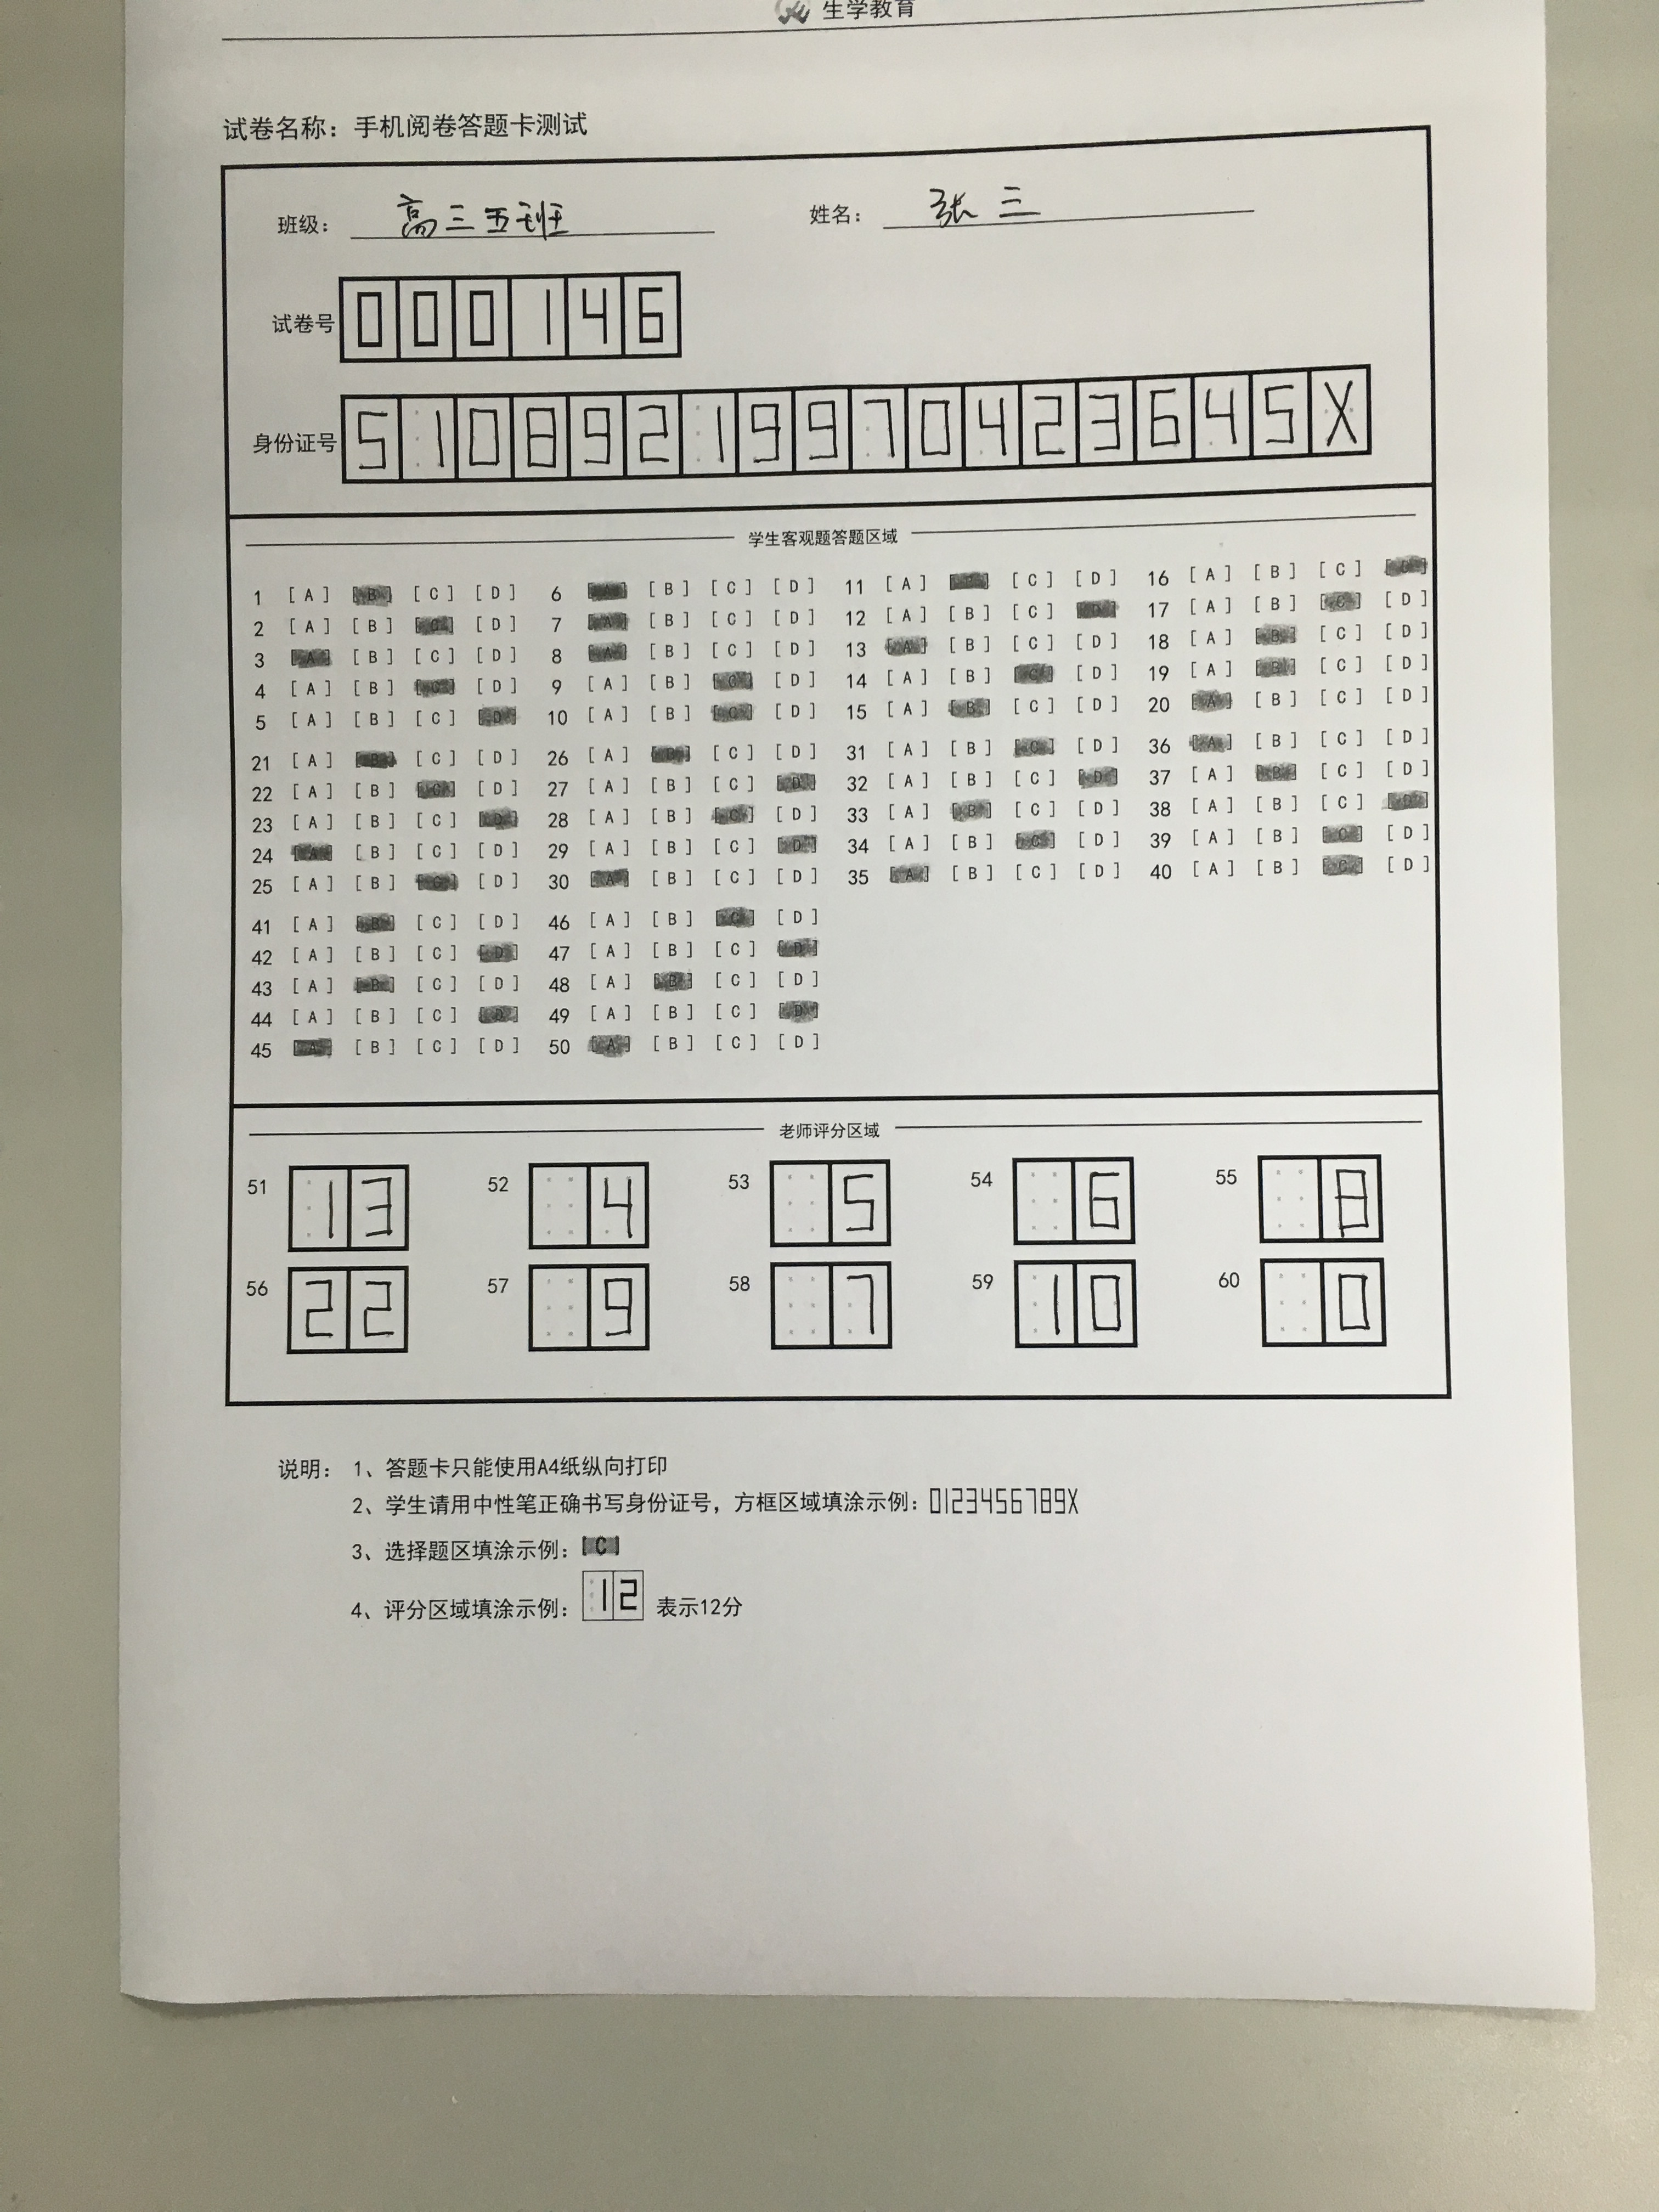 生学教育
试卷名称：手机阅卷答题卡测试
班级：高三五班 姓名：张三
试卷号 000146
身份证号 51089219970423645X
学生客观题答题区域
1 [A] [B] [C] [D] 6 [A] [B] [C] [D] 11 [A] [B] [C] [D] 16 [A] [B] [C] [D]
2 [A] [B] [C] [D] 7 [A] [B] [C] [D] 12 [A] [B] [C] [D] 17 [A] [B] [C] [D]
3 [A] [B] [C] [D] 8 [A] [B] [C] [D] 13 [A] [B] [C] [D] 18 [A] [B] [C] [D]
4 [A] [B] [C] [D] 9 [A] [B] [C] [D] 14 [A] [B] [C] [D] 19 [A] [B] [C] [D]
5 [A] [B] [C] [D] 10 [A] [B] [C] [D] 15 [A] [B] [C] [D] 20 [A] [B] [C] [D]
21 [A] [B] [C] [D] 26 [A] [B] [C] [D] 31 [A] [B] [C] [D] 36 [A] [B] [C] [D]
22 [A] [B] [C] [D] 27 [A] [B] [C] [D] 32 [A] [B] [C] [D] 37 [A] [B] [C] [D]
23 [A] [B] [C] [D] 28 [A] [B] [C] [D] 33 [A] [B] [C] [D] 38 [A] [B] [C] [D]
24 [A] [B] [C] [D] 29 [A] [B] [C] [D] 34 [A] [B] [C] [D] 39 [A] [B] [C] [D]
25 [A] [B] [C] [D] 30 [A] [B] [C] [D] 35 [A] [B] [C] [D] 40 [A] [B] [C] [D]
41 [A] [B] [C] [D] 46 [A] [B] [C] [D]
42 [A] [B] [C] [D] 47 [A] [B] [C] [D]
43 [A] [B] [C] [D] 48 [A] [B] [C] [D]
44 [A] [B] [C] [D] 49 [A] [B] [C] [D]
45 [A] [B] [C] [D] 50 [A] [B] [C] [D]
老师评分区域
51 13 52 4 53 5 54 6 55 8
56 22 57 9 58 7 59 10 60 0
说明： 1、答题卡只能使用A4纸纵向打印
2、学生请用中性笔正确书写身份证号，方框区域填涂示例：0123456789X
3、选择题区填涂示例：[C]
4、评分区域填涂示例：12 表示12分